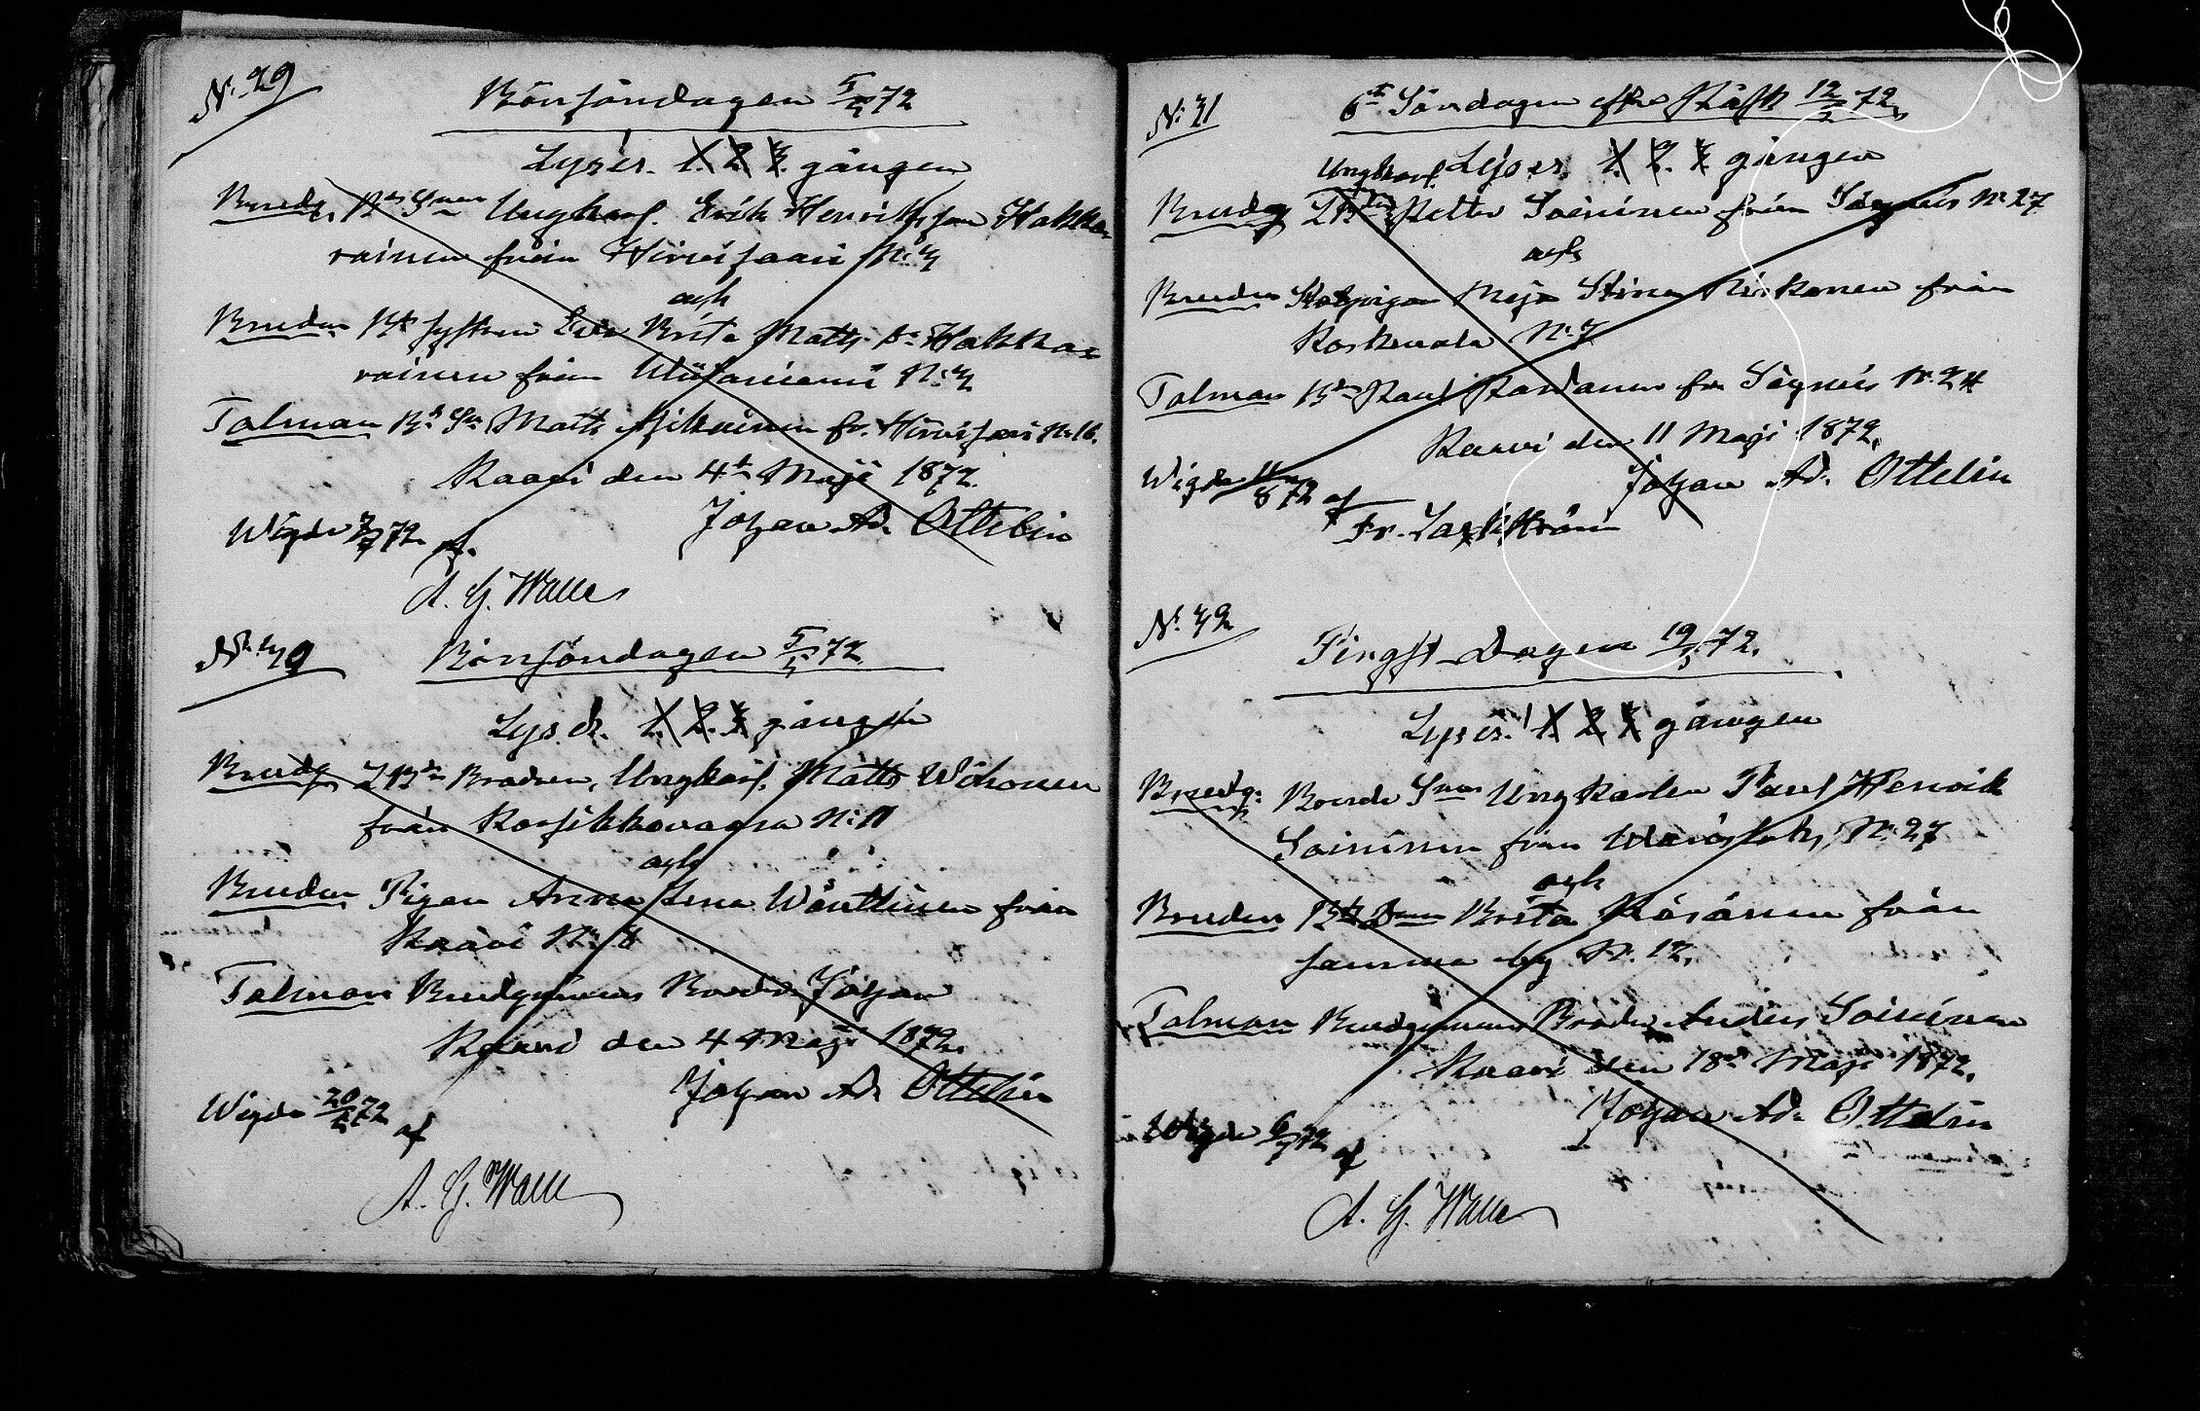 N: 29
Bönsöndagen 5/5 72
Lyses. 1. 2. 3. gången
Brudg. Bds Snen Ungkarl. Erik Henriksson Hakka-
rainen från Hirvisaari N: 3
och
Bruden Bd systern Brita Matts dr Hakka-
rainen från N: 3
Talman Bd Sn Matts fr. Hirvisaari N: 16.
Kaavi den 4de Maji 1872.
Johan Ad. Ottelin
Wigde 72 af
A. G. Walle
N: 30
Bönsöndagen 5/5 72
Lyses. 1. 2. 3. gången
Brudg. Bds Brodren, Ungkarl. Matts Wihonen
från Korsikkovaara N: 11
och
Bruden Pigan Anna Lena Wänttinen från
Kaavi N: 8
Talman Brudgummens Broder Johan
Kaavi den 4 Maji 1872.
Johan Ad. Ottelin
Wigde 20/5 72
af
A. G. Walle
N: 31
6te Söndagen efter Påsk 12/5 72
Lyses. 1. 2. 3. gången
Ungkarl.
Brudg Petter Soininen från Siynäis N: 27
och
Bruden Maja Stina från
Koskenala N: 7
Talman Bdn Paul fr Siynäis N: 24
Kaavi den 11 Maji 1872.
Johan Ad. Ottelin
Wigde 72 af
Fr. Lagerström
N: 32
Pingst-Dagen 19/5 72.
Lyses. 1. 2. 3. gången
Brudg: Bonde Snen Ungkarlen Paul Henrik
Soininen från N: 27
och
Bruden Bde Dren Brita Räsänen från
samma by N: 12.
Talman Brudgummens Broder Anders Soininen
Kaavi den 18de Maji 1872.
Johan Ad. Ottelin
Wigde 6/7 72 af
A. G. Walle